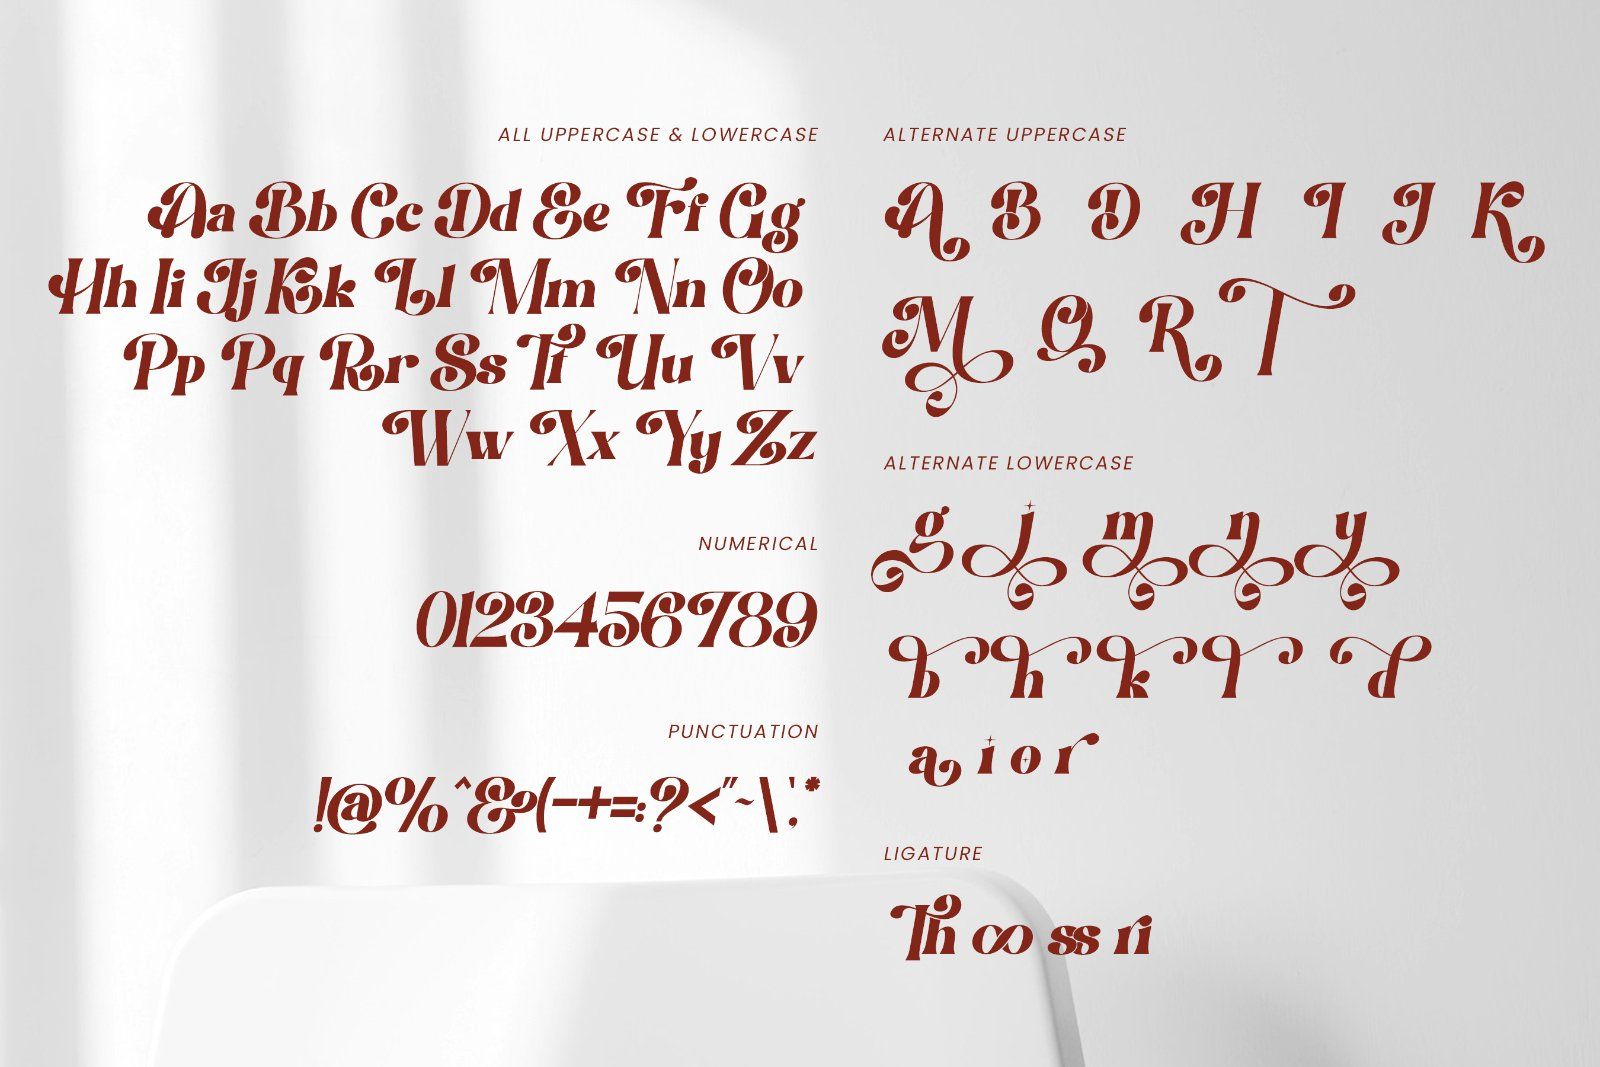 ALL UPPERCASE & LOWERCASE
Aa Bb Cc Dd Ee Ff Gg
Hh Ii Jj Kk Ll Mm Nn Oo
Pp Pq Rr Ss Tt Uu Vv
Ww Xx Yy Zz
NUMERICAL
0123456789
PUNCTUATION
!@%^&(-+=:?<"~\;'*
ALTERNATE UPPERCASE
A B D H I J K
M Q R T
ALTERNATE LOWERCASE
g j m n y
b h k l d
a i o r
LIGATURE
Th oo ss ri